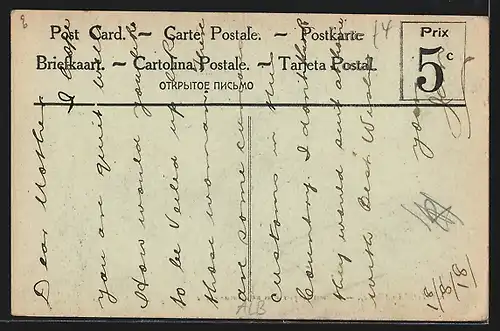 8
Post Card. – Carte Postale. – Postkarte
Briefkaart. – Cartolina Postale. – Tarjeta Postal.
ОТКРЫТОЕ ПИСЬМО
14
Prix
5 c
Dear Mother I hope
you are quiet well
How would you like
to be Veiled up like
those woman
are some curious
customs in this
Country. I don't think
they would suit at home
with Best Wishes
your
18/3/18
ALB